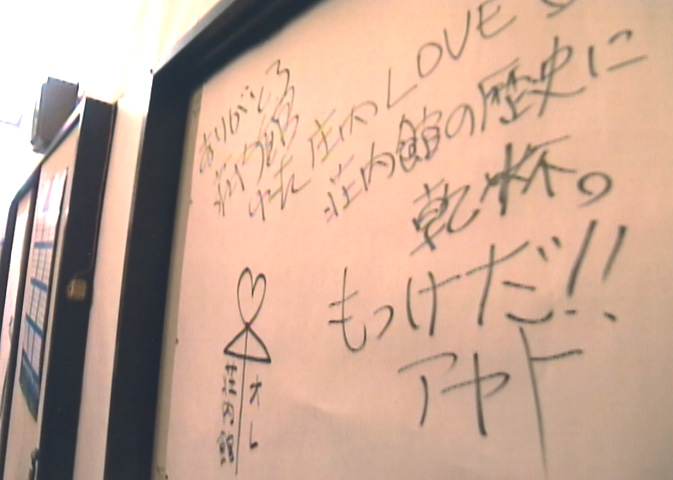 ありがとう
荘内館
庄内LOVE
荘内館の歴史に
乾杯。
もっけだ!!
アヤト
オレ
荘内館